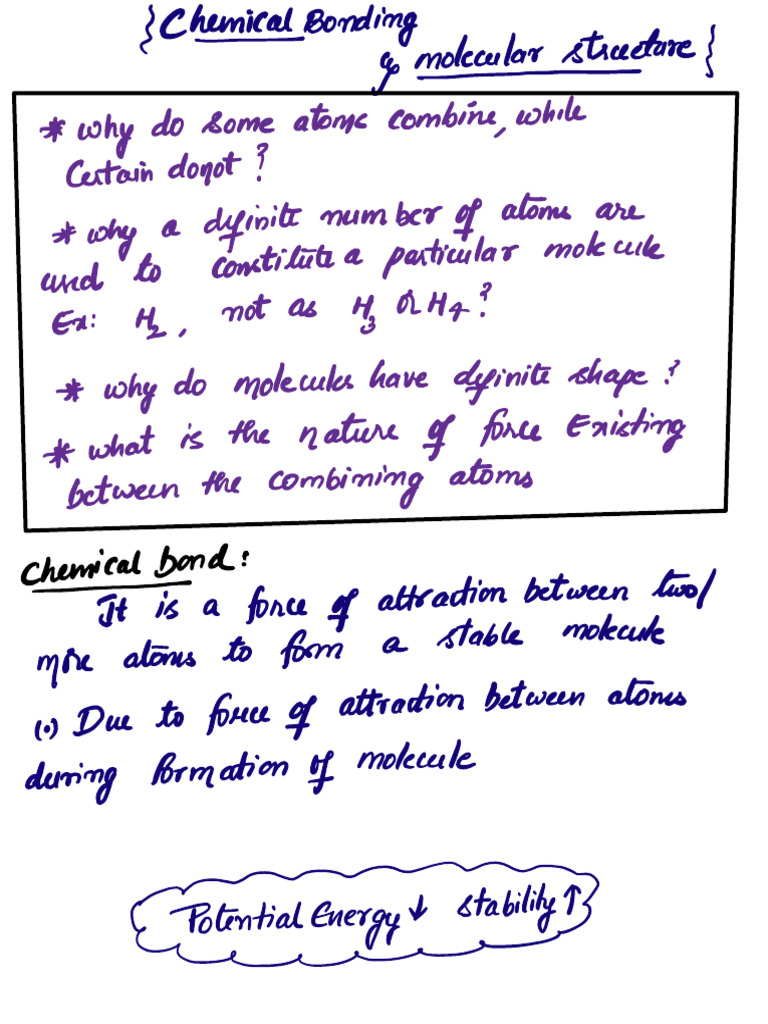 {Chemical Bonding
& molecular structure}
* why do some atoms combine, while
Certain donot ?
* why a definite number of atoms are
used to constitute a particular molecule
Ex: H₂, not as H₃ or H₄ ?
* why do molecules have definite shape ?
* what is the nature of force Existing
between the combining atoms
Chemical Bond :
It is a force of attraction between two/
more atoms to form a stable molecule
(•) Due to force of attraction between atoms
during formation of molecule
Potential Energy ↓ Stability ↑